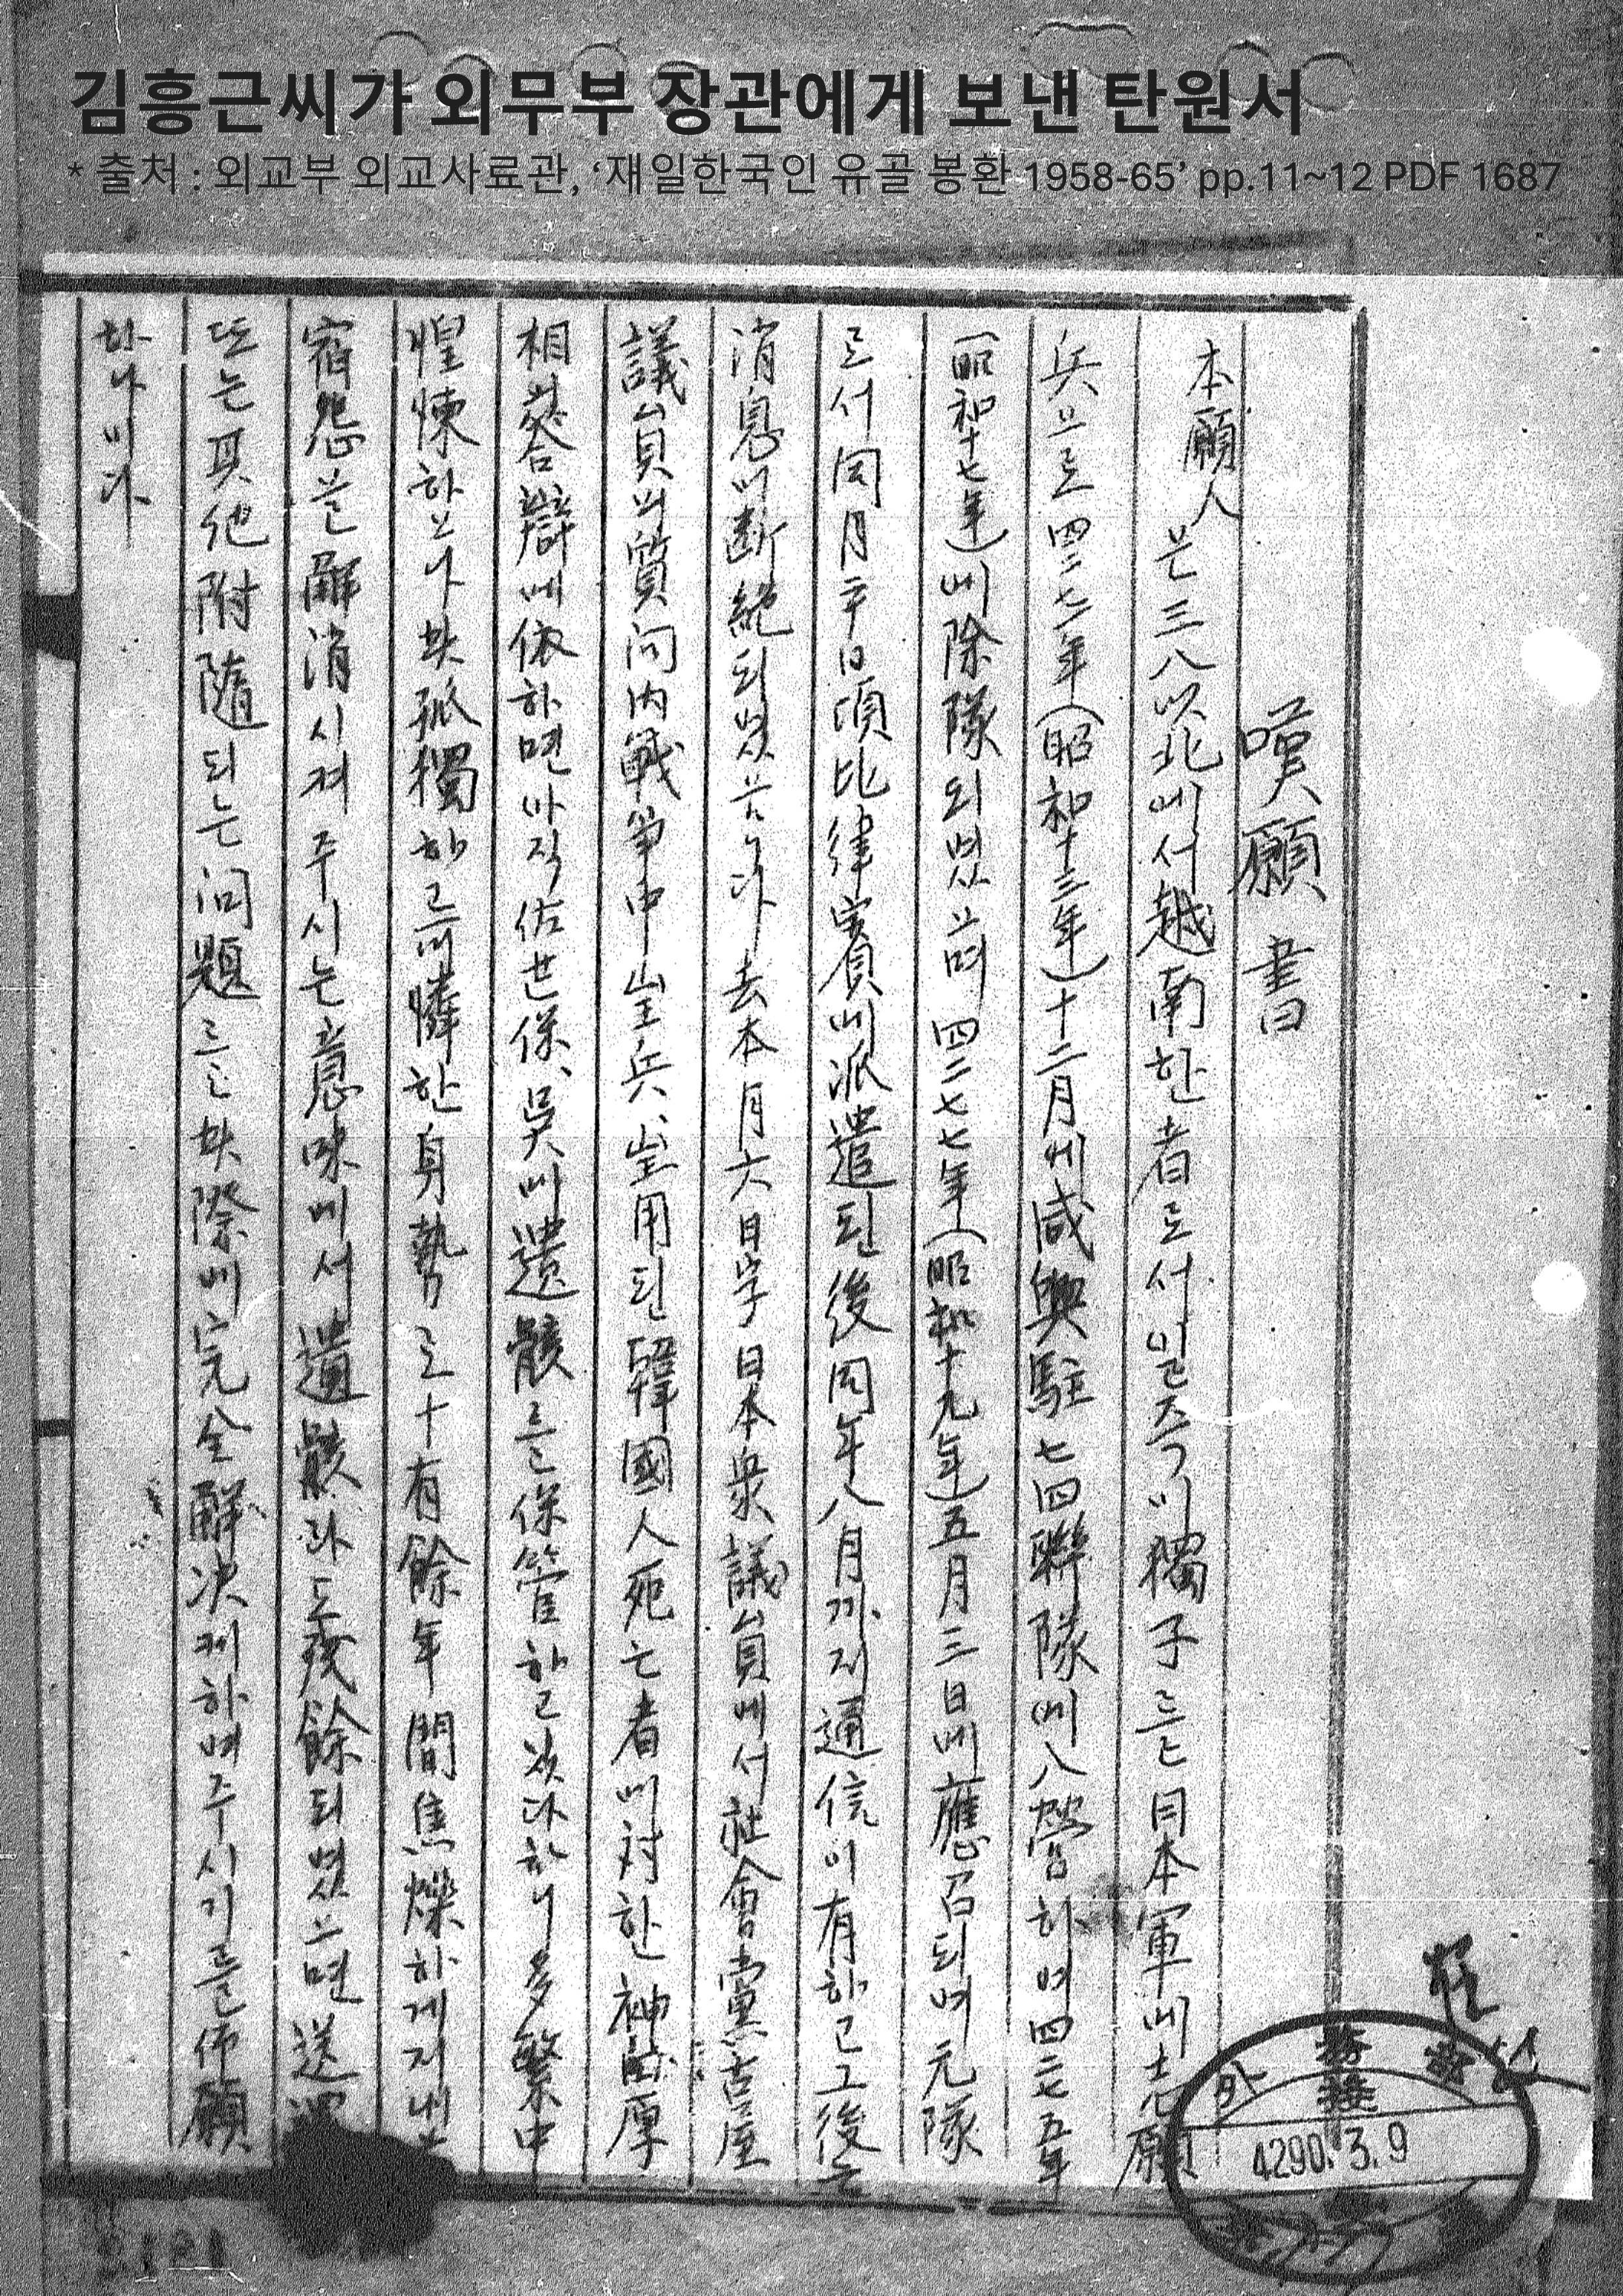 김흥근씨가 외무부 장관에게 보낸 탄원서
* 출처 : 외교부 외교사료관, ‘재일한국인 유골 봉환 1958-65’ pp.11~12 PDF 1687
嘆願書
本願人은 三八以北에서 越南한 者로서 일즉이 獨子를 日本軍에 志願
兵으로 四二七一年(昭和十三年)十二月에 咸興駐七四聯隊에 入營하여 四二七五年
(昭和十七年)에 除隊되였으며 四二七七年(昭和十九年)五月三日에 應召되여 元隊
로서 同月二十日頃 比律賓에 派遣된 後 同年八月까지 通信이 有하고 그 後는
消息이 斷絶되였읍니다 去本月六日字 日本衆議員에서 社會黨 古屋
議員의 質問 內 戰爭中 皇兵、皇用된 韓國人 死亡者에 対한 神田 厚
相 答辯에 依하면 아직 佐世保、吳에 遺骸를 保管하고 있다하니 多繁中
惶悚하오나 此 孤獨하고 可憐한 身勢로 十有餘年間 焦燥하게 지내는
宿怨을 解消시켜 주시는 意味에서 遺骸라도 殘餘되였으면 送還
또는 其他 附隨되는 问題를 此際에 完全 解决케 하여 주시기를 伏願
하나이다
外務部
接
4290. 3. 9